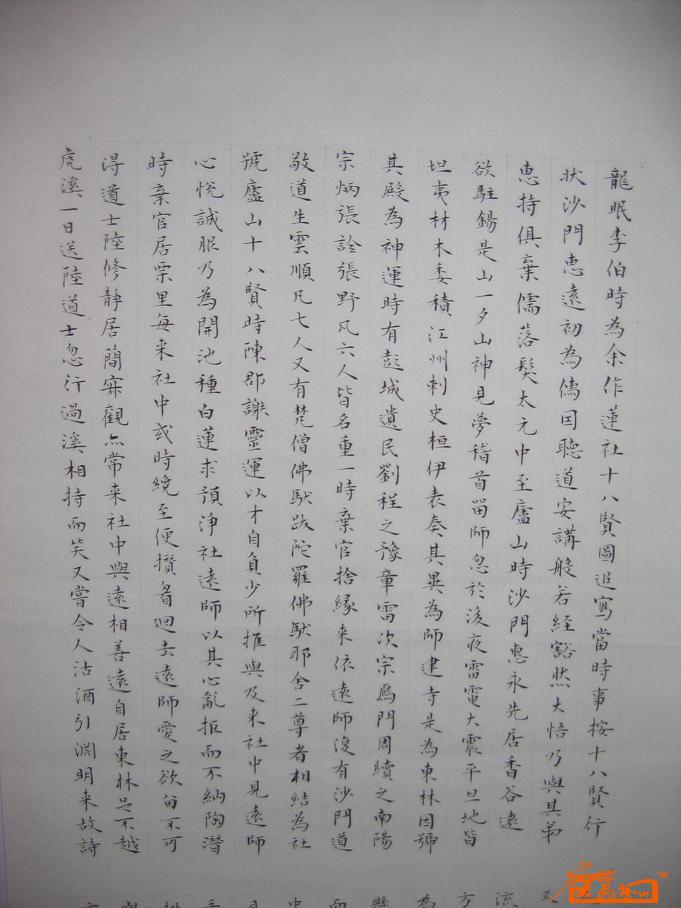 龍眠李伯時為余作蓮社十八賢圖追寫當時事按十八賢行
狀沙門惠遠初為儒因聽道安講般若経豁然大悟乃與其弟
惠持俱棄儒落髮太元中至廬山時沙門惠永先居香谷遠
欲駐錫是山一夕山神見夢稽首留師忽於後夜雷電大震平旦地皆
坦夷材木委積江州刺史桓伊表奏其異為師建寺是為東林因號
其殿為神運時有彭城遺民劉程之豫章雷次宗鴈門周續之南陽
宗炳張詮張野凡六人皆名重一時棄官捨緣来依遠師復有沙門道
敬道生雲順凡七人又有梵僧佛馱跋陀羅佛馱耶舍二尊者相結為社
號廬山十八賢時陳郡謝靈運以才自負少所推與及来社中見遠師
心悅誠服乃為開池種白蓮求預淨社遠師以其心亂拒而不納陶潛
時棄官居栗里每来社中或時纔至便攢眉迴去遠師愛之欲留不可
得道士陸修靜居簡寂觀亦常来社中與遠相善遠自居東林足不越
虎溪一日送陸道士忽行過溪相持而笑又嘗令人沽酒引淵明来故詩